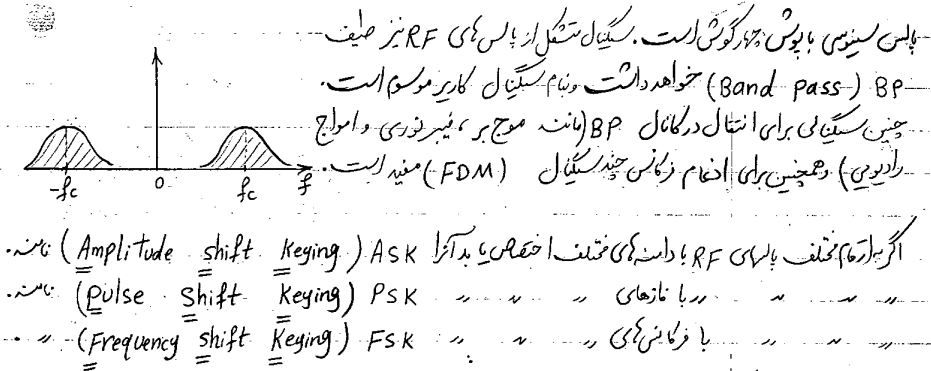 پالس سینوسی با پوش چهارگوش است. سیگنال متشکل از پالس‌های RF نیز طیف
BP (Band pass) خواهد داشت و بنام سیگنال کاریر موسوم است.
چنین سیگنالی برای انتقال در کانال BP (مانند موج‌بر، فیبر نوری و امواج
رادیویی) و همچنین برای ادغام فرکانس چند سیگنال (FDM) مفید است.
-fc 0 fc f
اگر به ارقام مختلف پالسهای RF با دامنه‌های مختلف اختصاص یابد آنرا ASK (Amplitude shift Keying) نامند.
〃 〃 〃 〃 〃 با فازهای 〃 〃 〃 PSK (Pulse shift Keying) نامند.
〃 〃 〃 〃 با فرکانس‌های 〃 〃 〃 FSK (Frequency shift Keying) 〃.